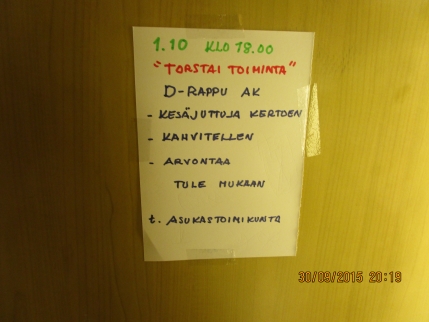 1.10 KLO 18.00
"TORSTAI TOIMINTA"
D-RAPPU AK
- KESÄJUTTUJA KERTOEN
- KAHVITELLEN
- ARVONTAA
TULE MUKAAN
t. ASUKASTOIMIKUNTA
30/09/2015 20:19